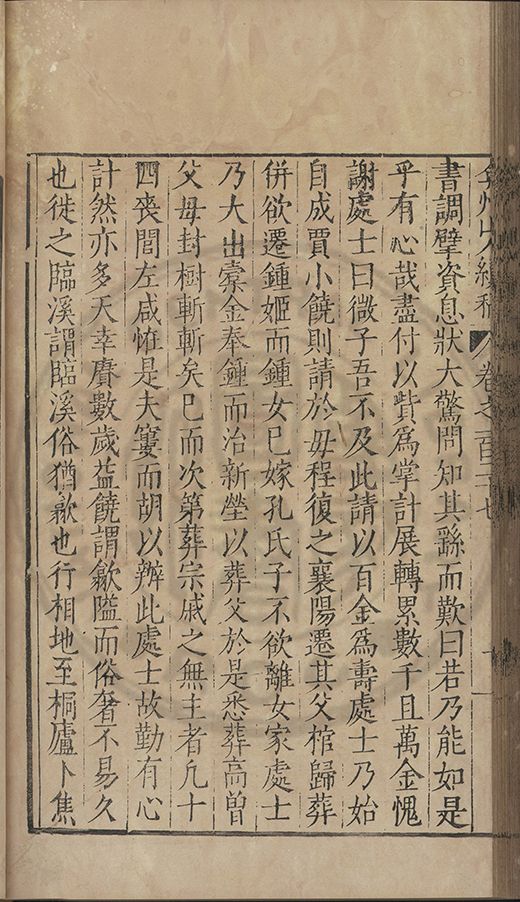 弇州山人續稿 卷之一百二十七
書調擘資息狀大驚問知其繇而歎曰若乃能如是
乎有心哉盡付以貲爲掌計展轉累數千且萬金愧
謝處士曰微子吾不及此請以百金爲壽處士乃始
自成賈小饒則請於毋程復之襄陽遷其父棺歸葬
併欲遷鍾姬而鍾女已嫁孔氏子不欲離女家處士
乃大出橐金奉鍾而治新塋以葬父於是悉葬高曾
父毋封樹斬斬矣已而次第葬宗戚之無主者凡十
四喪閭左咸恠是夫窶而胡以辦此處士故勤有心
計然亦多天幸賡數歲益饒謂歙隘而俗奢不易久
也徙之臨溪謂臨溪俗猶歙也行相地至桐廬卜焦